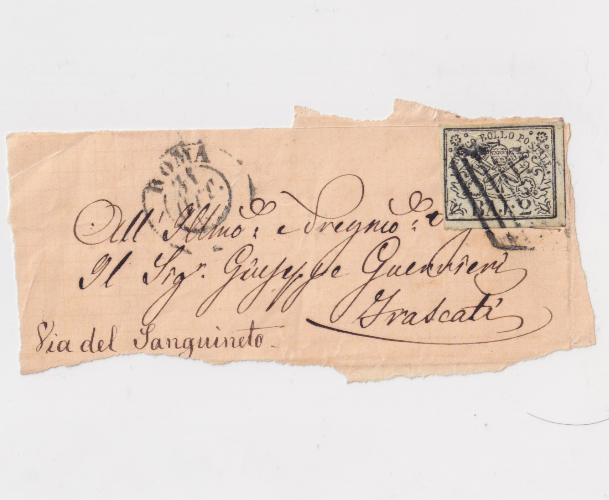 ROMA
31
BOLLO POSTALE
BAJ. 2
All' Illmo: e Pregmo:
Il Sigr. Giuseppe Guerrieri
Frascati
Via del Sanguineto